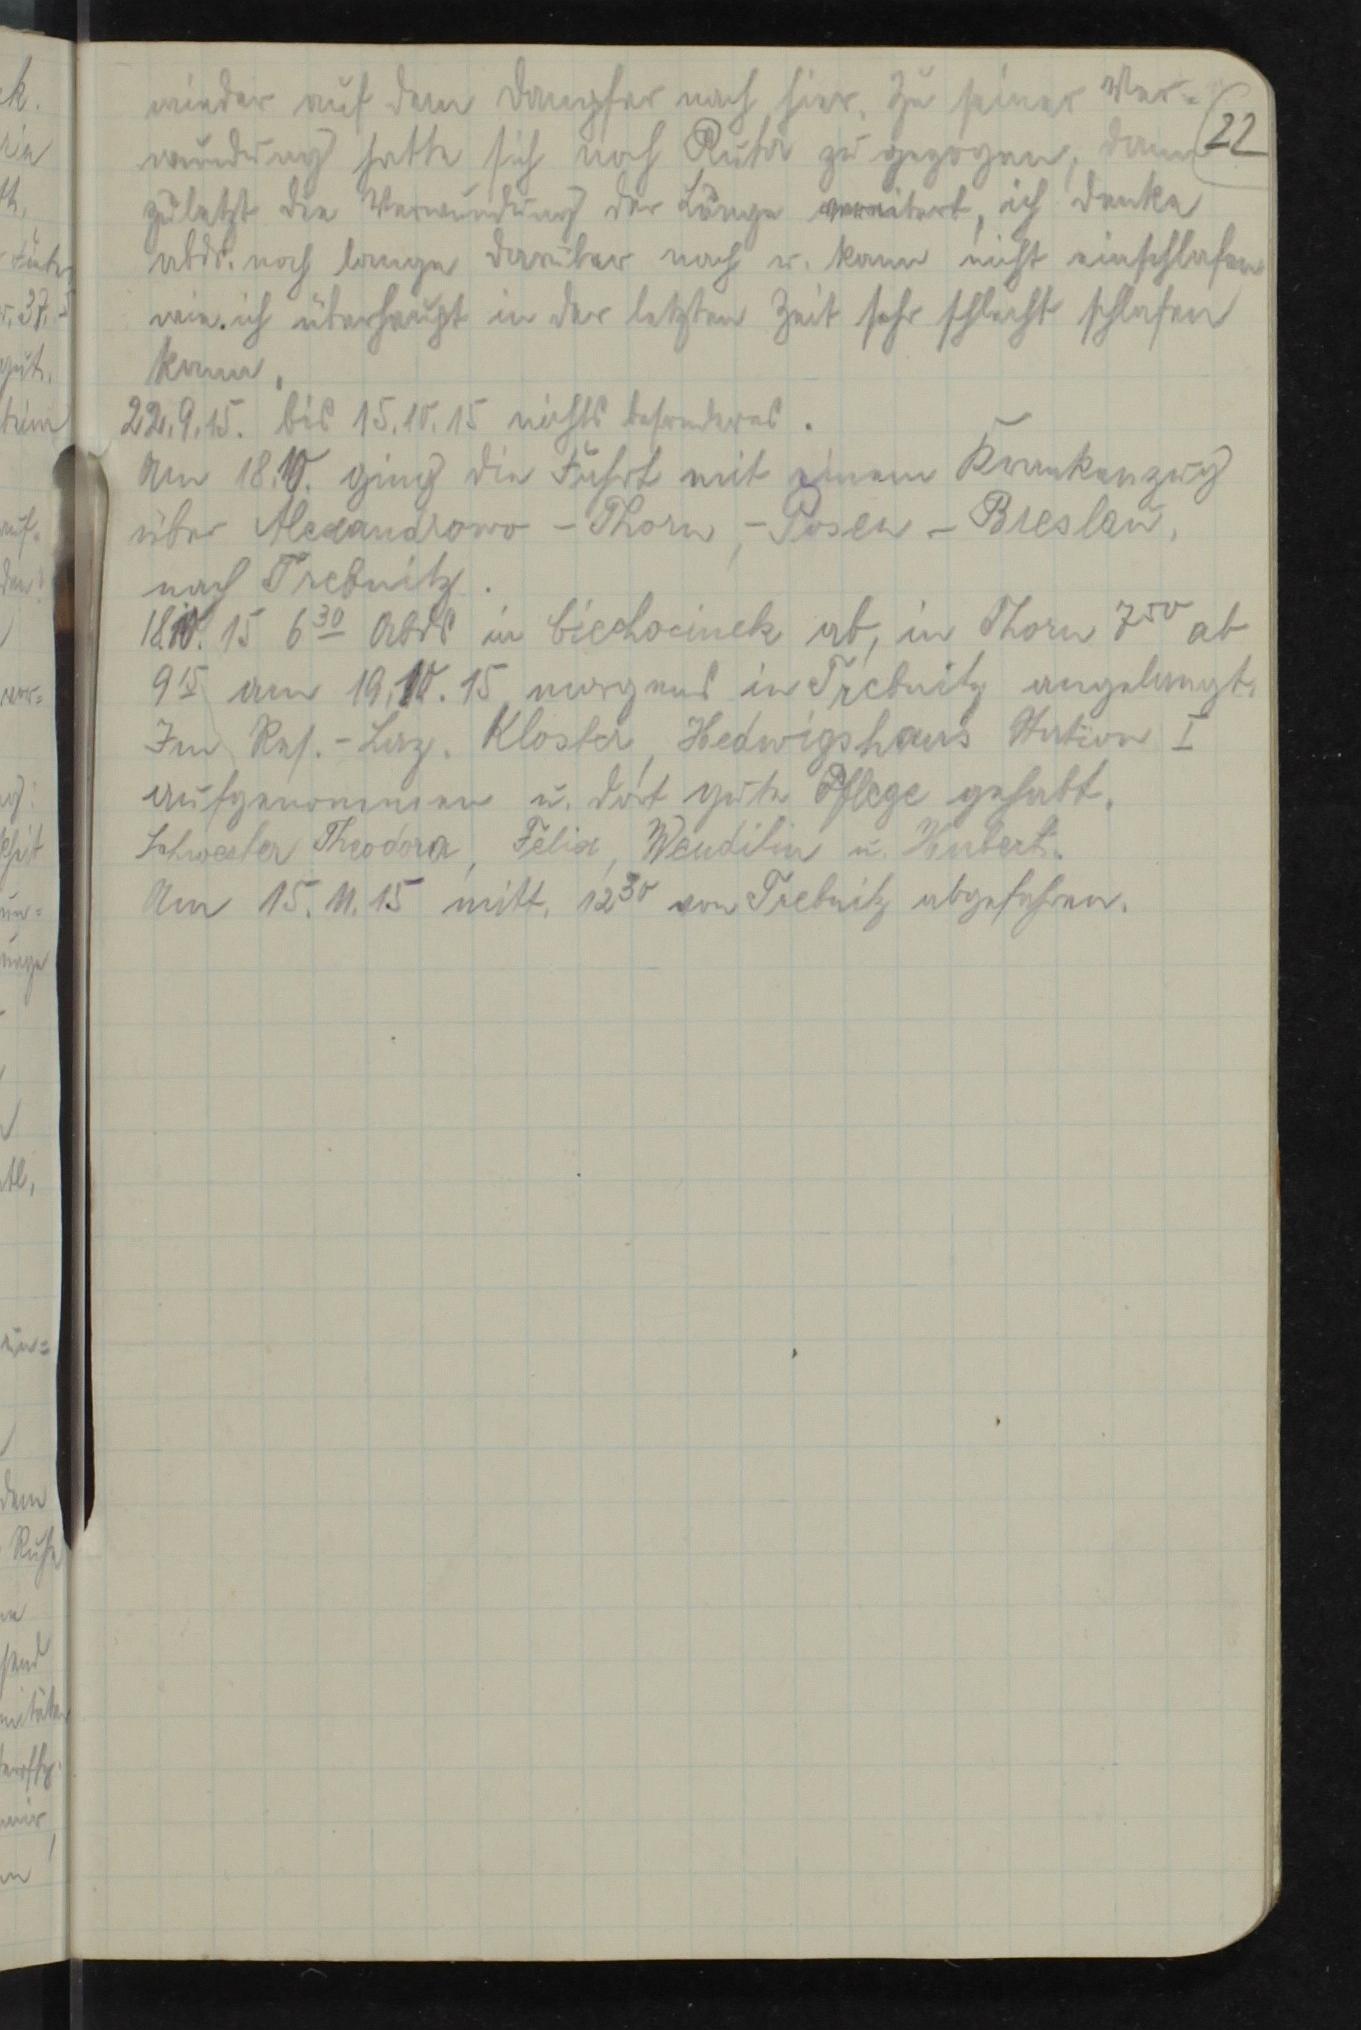 22
wieder auf dem Dampfer nach hier. Zu seiner Ver-
wundung hatte sich noch Ruhr zu gezogen, dann
zuletzt die Verwundung der Lunge vereitert, ich denke
abds. noch lange darüber nach u. kann nicht einschlafen
wie ich überhaupt in der letzten Zeit sehr schlecht schlafen
kann.
22.9.15. bis 15.10.15 nichts besonderes.
Am 18.10. ging die Fahrt mit einem Krankenzug
über Alexandrowo - Thorn, - Posen - Breslau,
nach Trebnitz.
18.10.15 6³⁰ Abds in Ciechocinek ab, in Thorn 7⁵⁰ ab
9¹⁵ am 19.10.15 morgens in Trebnitz angelangt.
Im Res.-Laz. Kloster, Hedwigshaus Station I
aufgenommen u. dort gute Pflege gehabt.
Schwester Theodora, Felix, Wendilin u. Hubert.
Am 15.11.15 mitt. 12³⁰ von Trebnitz abgefahren.